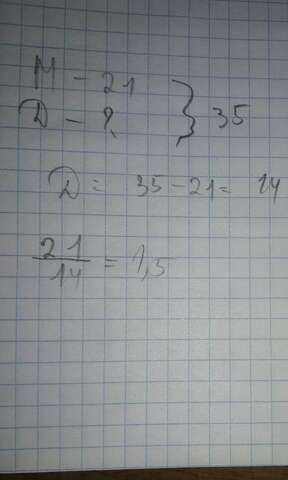 М - 21
Д - ? } 35
Д = 35 - 21 = 14
21/14 = 1,5